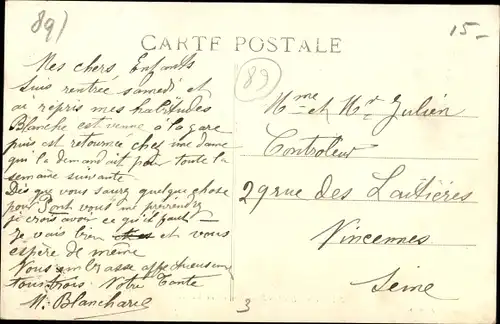 89)
15-
CARTE POSTALE
89
Mes chers Enfants
Suis rentrée samedi et
ai repris mes habitudes
Blanche est venue à la gare
puis est retournée chez une dame
qui la demandait pour toute la
semaine suivante
Dès que vous saurez quelque chose
pour Pont vous me préviendrez
je crois avoir ce qu'il faut —
Je vais bien et vous
espère de même
Vous embrasse affectueusement
tous trois. Votre Tante
M. Blanchard
Mme et Mr Julien
Controleur
29 rue des Laitières
Vincennes
Seine
3